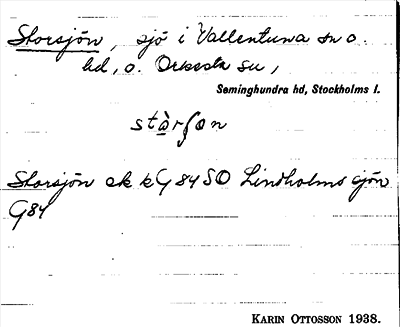 Storsjön, sjö i Vallentuna sn o.
hd, o. Orkesta sn,
Seminghundra hd, Stockholms l.
stàrʃøn
Storsjön ek kG 84 SO Lindholms sjön
G84
KARIN OTTOSSON 1938.